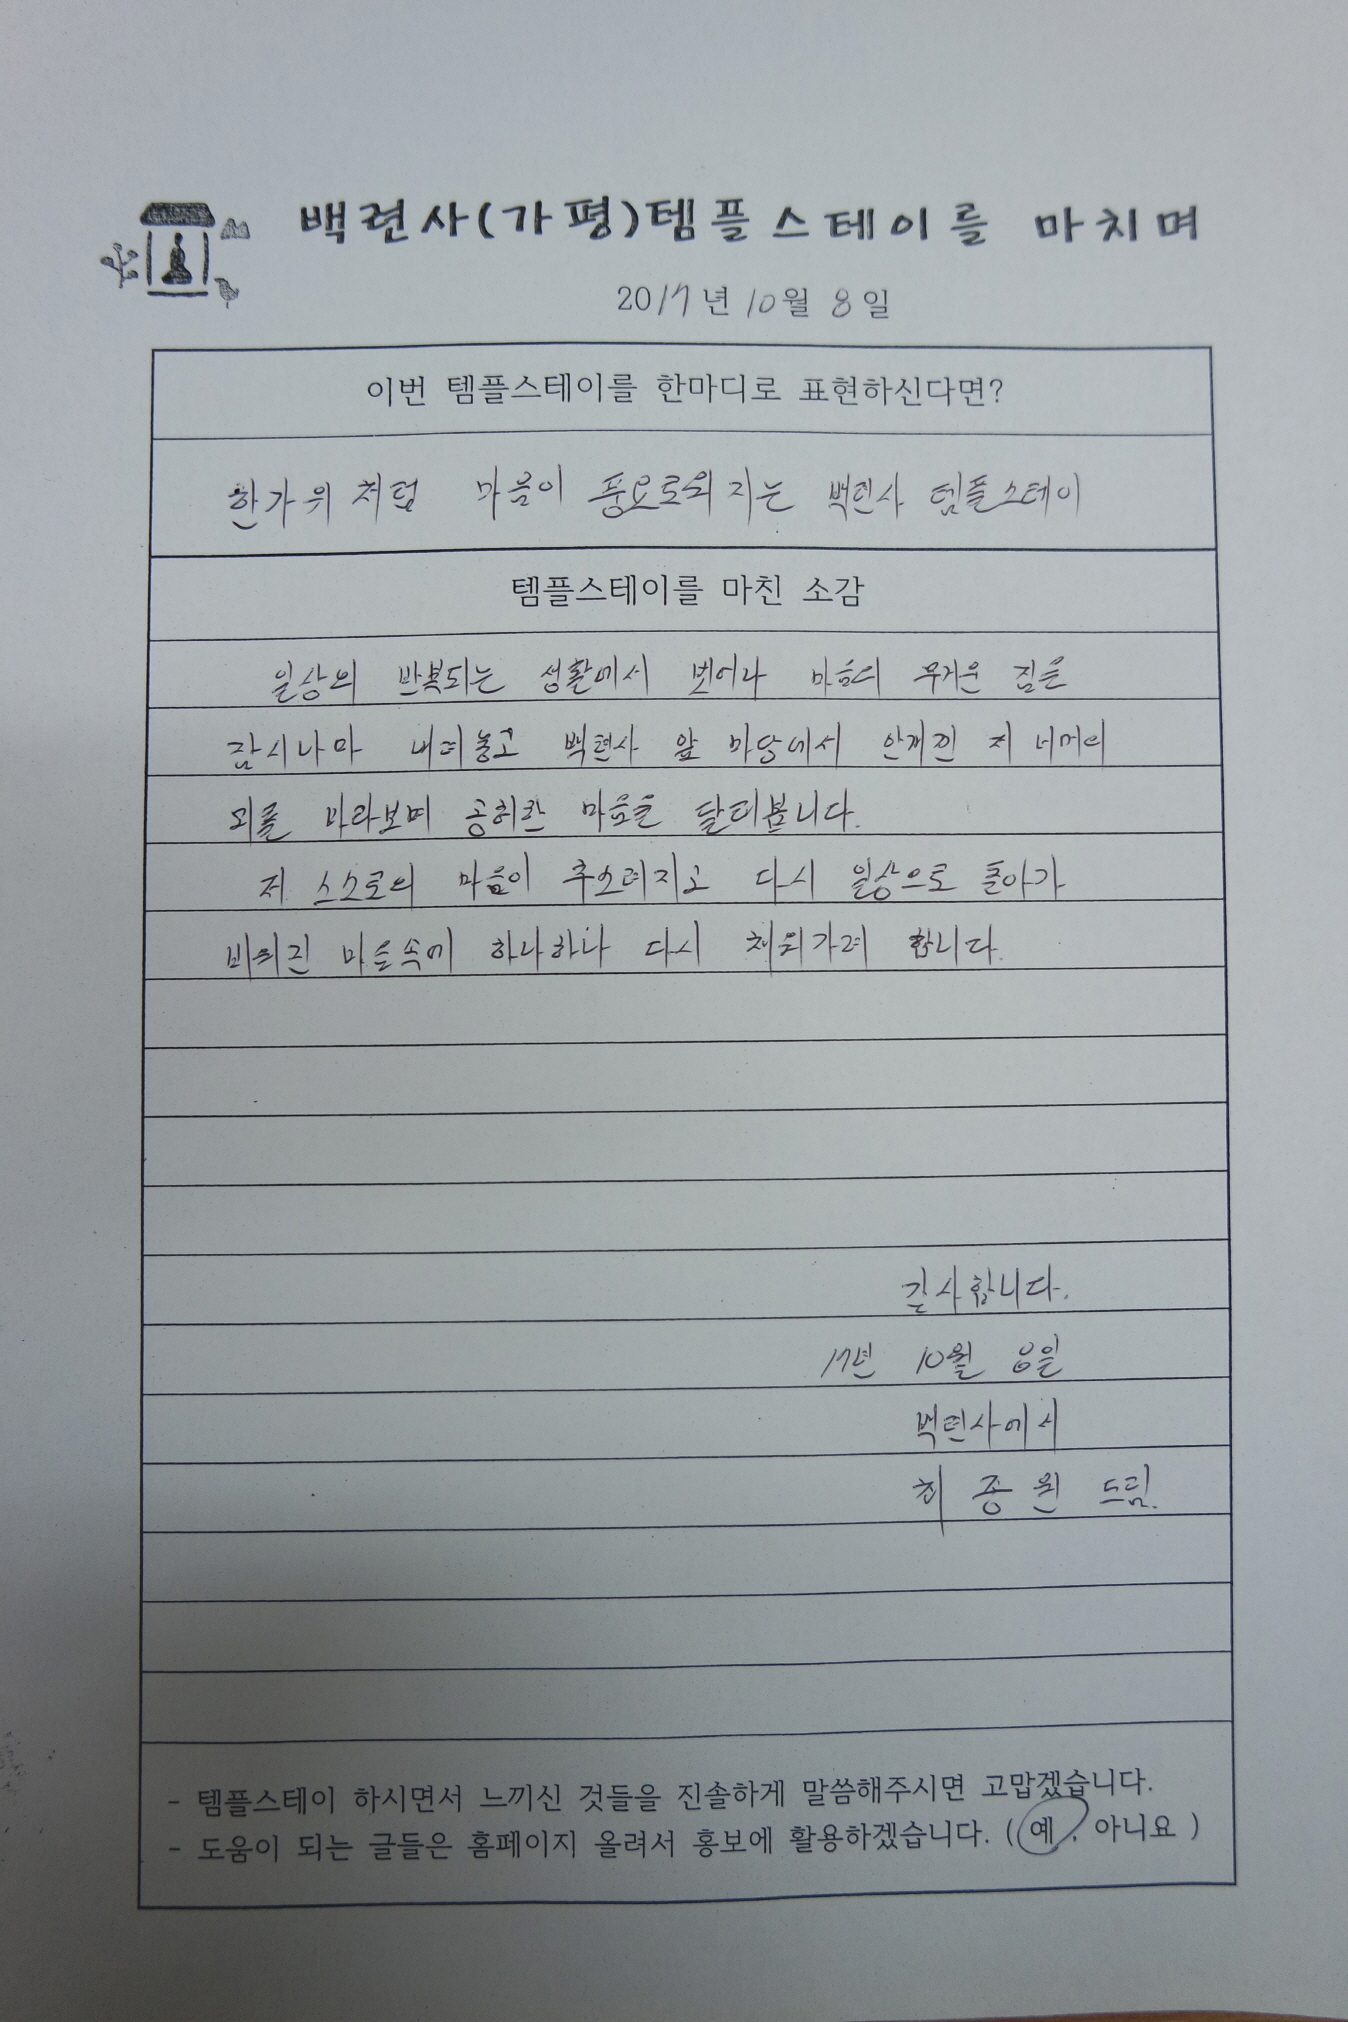 백련사(가평)템플스테이를 마치며
2017년 10월 8일
이번 템플스테이를 한마디로 표현하신다면?
한가위 처럼 마음이 풍요로워 지는 백련사 템플스테이
템플스테이를 마친 소감
일상의 반복되는 생활에서 벗어나 마음의 무거운 짐을
잠시나마 내려놓고 백련사 앞 마당에서 안개낀 저 너머의
외를 바라보며 공허한 마음을 달래봅니다.
저 스스로의 마음이 추스려지고 다시 일상으로 돌아가
비워진 마음속에 하나하나 다시 채워가려 합니다.
감사합니다.
17년 10월 8일
백련사에서
최종원 드림.
- 템플스테이 하시면서 느끼신 것들을 진솔하게 말씀해주시면 고맙겠습니다.
- 도움이 되는 글들은 홈페이지 올려서 홍보에 활용하겠습니다. ( 예 , 아니요 )